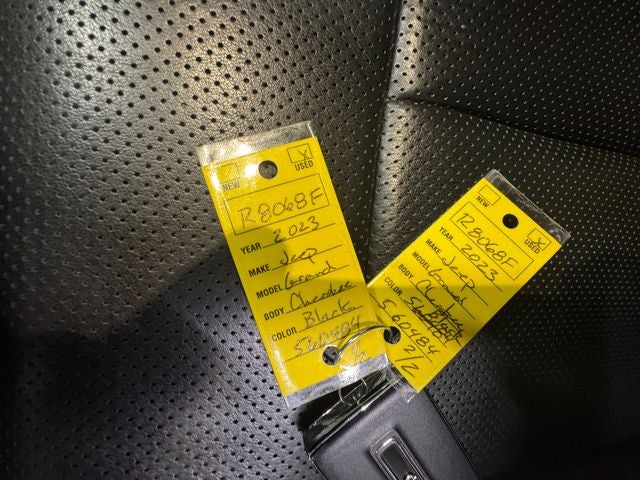 NEW USED
R8068F
YEAR 2023
MAKE Jeep
MODEL Grand
BODY Cherokee
COLOR Black
560484
1/2
NEW USED
R8068F
YEAR 2023
MAKE Jeep
MODEL Grand
BODY
COLOR Black
560484
2/2